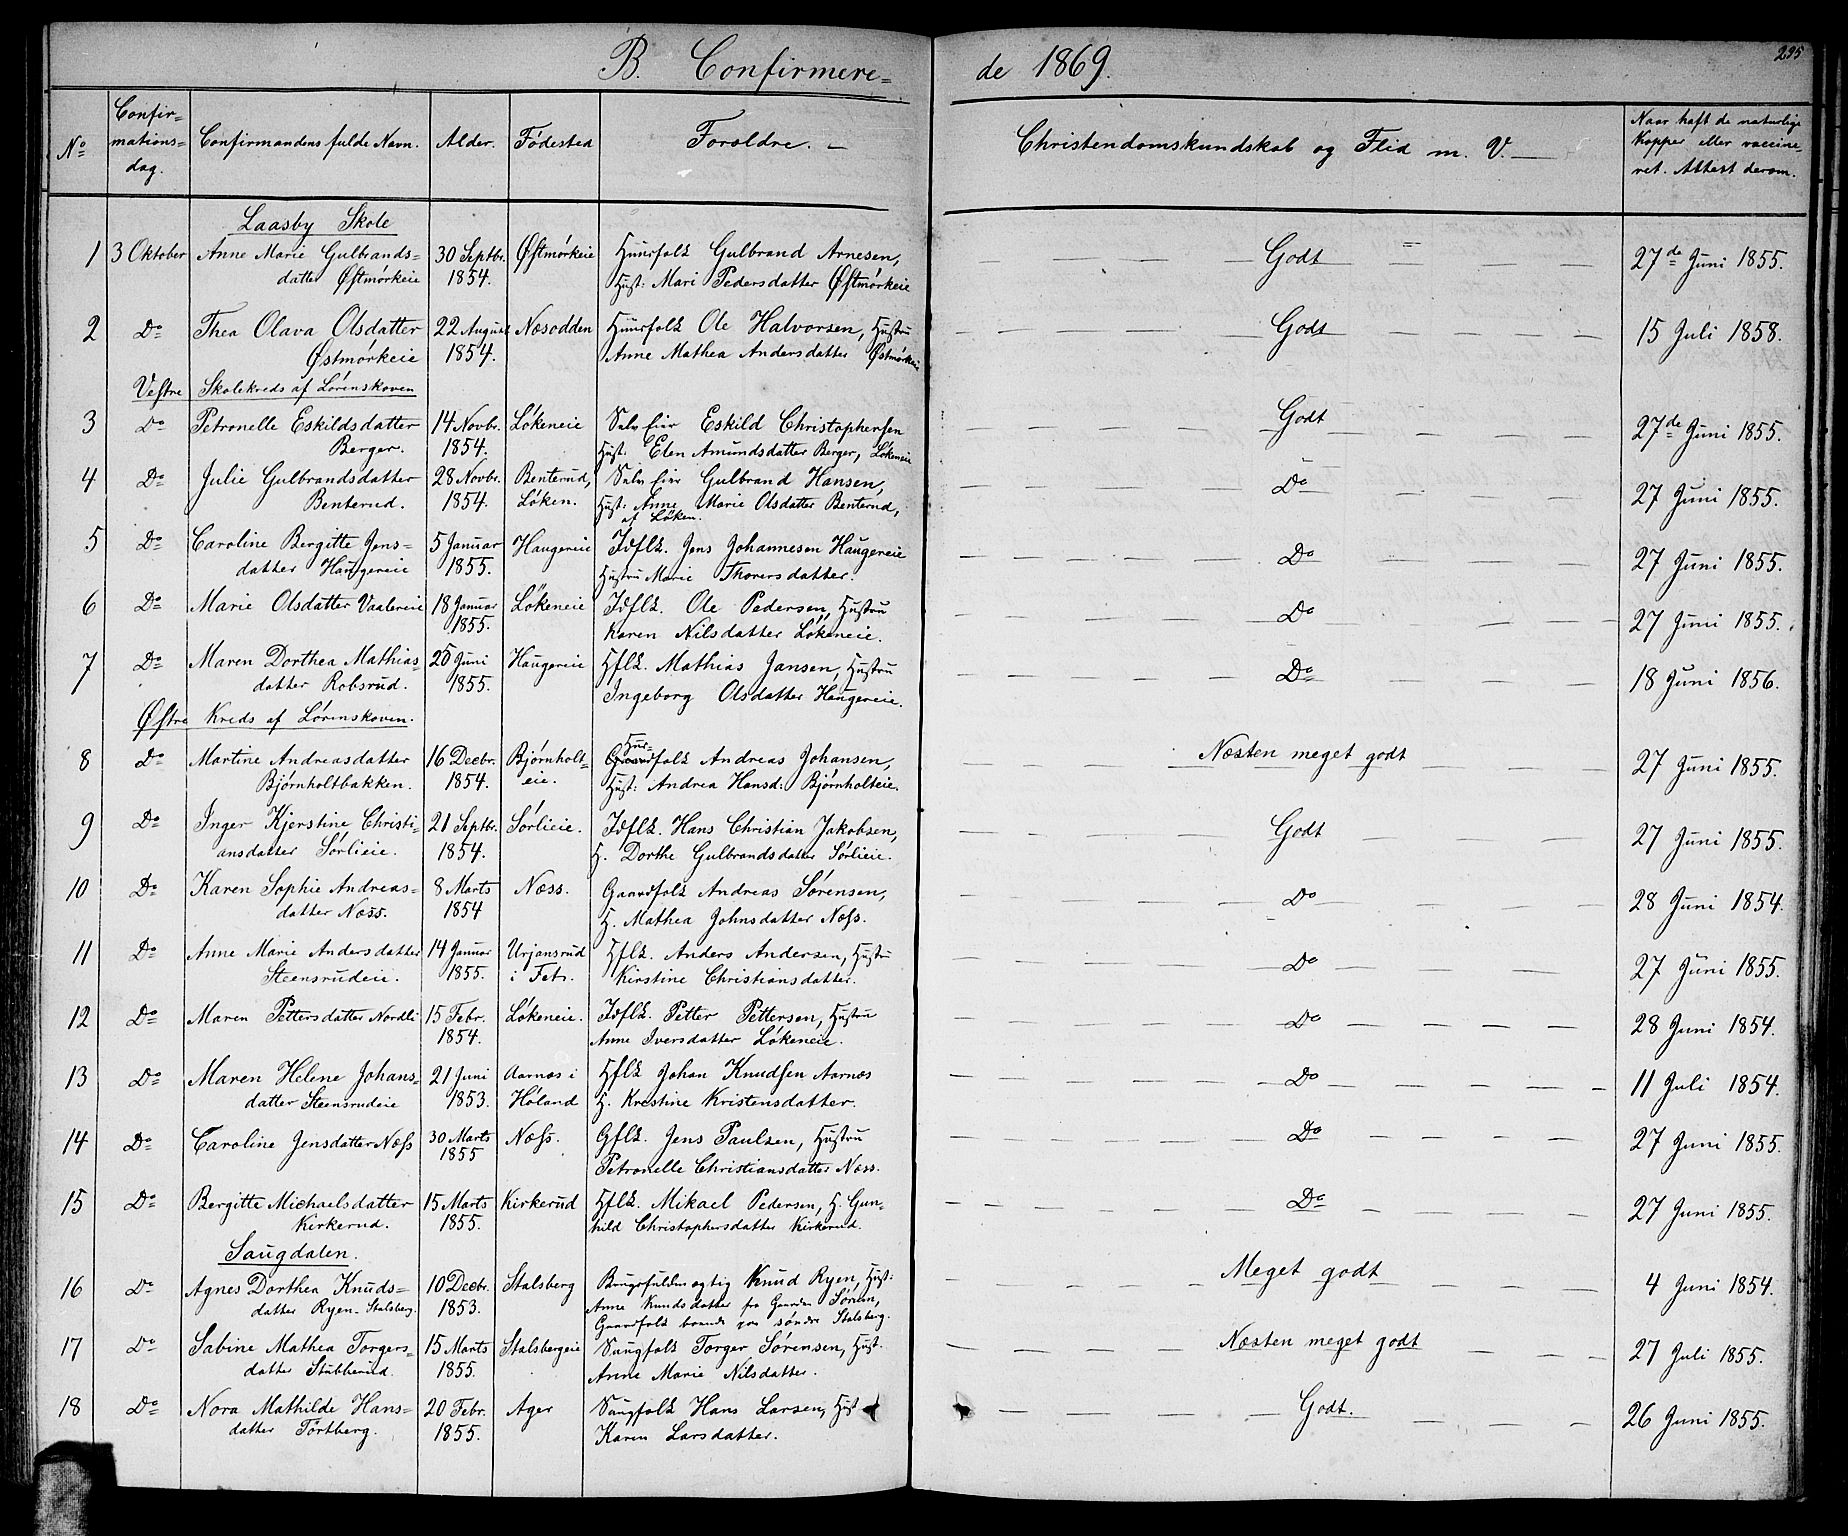 B. Confirmere= de 1869. 295
No Confir= mations= dag. Confirmandens fulde Navn. Alder. Fødested Forældre. — Christendomskundskab og Flid m. V. — Naar haft de naturlige Kopper eller vaccine= ret. Attest derom.
Laasby Skole
1 3 Oktober Anne Marie Gulbrands= 30 Septbr. Østmørkeie Huusfolk Gulbrand Arnesen, Godt 27de Juni 1855.
datter Østmørkeie 1854. Hust: Mari Pedersdatter Østmørkeie
2 Do Thea Olava Olsdatter 22 August Næsodden Huusfolk Ole Halvorsen, Hustru Godt 15 Juli 1858.
Østmørkeie 1854. Anne Mathea Andersdatter Østmørkeie
Vestre Skolekreds af Lørenskoven
3 Do Petronelle Eskildsdatter 14 Novbr. Løkeneie Selveier Eskild Christophersen Godt 27de Juni 1855.
Berger. 1854. Hust. Elen Amundsdatter Berger, Løkeneie
4 Do Julie Gulbrandsdatter 28 Novbr. Benterud, Selveier Gulbrand Hansen, Do 27 Juni 1855.
Benterud. 1854. Løken. Hust: Anne Marie Olsdatter Benterud,
af Løken.
5 Do Caroline Bergitte Jens= 5 Januar Haugereie Idflk. Jens Johannesen Haugereie Do 27 Juni 1855.
datter Haugereie 1855. Hustru Marie Thorersdatter.
6 Do Marie Olsdatter Vaalereie 18 Januar Løkeneie Idflk. Ole Pedersen, Hustru Do 27 Juni 1855.
1855. Karen Nilsdatter Løkeneie.
7 Do Maren Dorthea Mathias= 25 Juni Haugereie Hflk. Mathias Jansen, Hustru Do 18 Juni 1856.
datter Robsrud. 1855. Ingeborg Olsdatter Haugereie.
Østre Kreds af Lørenskoven.
8 Do Martine Andreasdatter 16 Decbr. Bjørnholt= Huusfolk Andreas Johansen, Næsten meget godt 27 Juni 1855.
Bjørnholtbakken. 1854. eie. Hust: Andrea Hansd: Bjørnholteie.
9 Do Inger Kjerstine Christi= 21 Septbr. Sørlieie. Idflk. Hans Christian Jakobsen, Godt 27 Juni 1855.
ansdatter Sørlieie. 1854. H. Dorthe Gulbrandsdatter Sørlieie.
10 Do Karen Sophie Andreas= 8 Marts Næss. Gaardfolk Andreas Sørensen, Do 28 Juni 1854.
datter Næss. 1854 H. Mathea Johnsdatter Næss.
11 Do Anne Marie Andersdatter 14 Januar Urjansrud Hflk. Anders Andersen, Hustru Do 27 Juni 1855.
Steensrudeie. 1855. i Fet. Kirstine Christiansdatter.
12 Do Maren Pettersdatter Nordli 15 Febr. Løkeneie. Idflk. Petter Pettersen, Hustru Do 28 Juni 1854.
1854. Anne Iversdatter Løkeneie.
13 Do Maren Helene Johans= 21 Juni Aarnæs i Hflk Johan Knudsen Aarnæs Do 11 Juli 1854.
datter Steensrudeie 1853. Høland H. Kristine Kristensdatter.
14 Do Caroline Jensdatter Næss 30 Marts Næss. Gflk. Jens Paulsen, Hustru Do 27 Juni 1855.
1855 Petronelle Christiansdatter Næss.
15 Do Bergitte Michaelsdatter 15 Marts Kirkerud Hflk. Mikael Pedersen, H. Gun= Do 27 Juni 1855.
Kirkerud. 1855. hild Christophersdatter Kirkerud.
Saugdalen.
16 Do Agnes Dorthea Knuds= 10 Decbr. Stalsberg Brugsfuldmægtig Knud Ryen, Hust: Meget godt 4 Juni 1854.
datter Ryen Stalsberg. 1853. Anne Knudsdatter fra Gaarden Sørum,
Gaardfolk boende paa søndre Stalsberg.
17 Do Sabine Mathea Torgers= 15 Marts Stalsbergeie Saugfolk Torger Sørensen, Hust. Næsten meget godt 27 Juli 1855.
datter Stubberud. 1855. Anne Marie Nilsdatter.
18 Do Nora Mathilde Hans= 20 Febr. Ager Saugfolk Hans Larsen, Hust Godt. 26 Juni 1855.
datter Tørtberg. 1855. Karen Larsdatter.